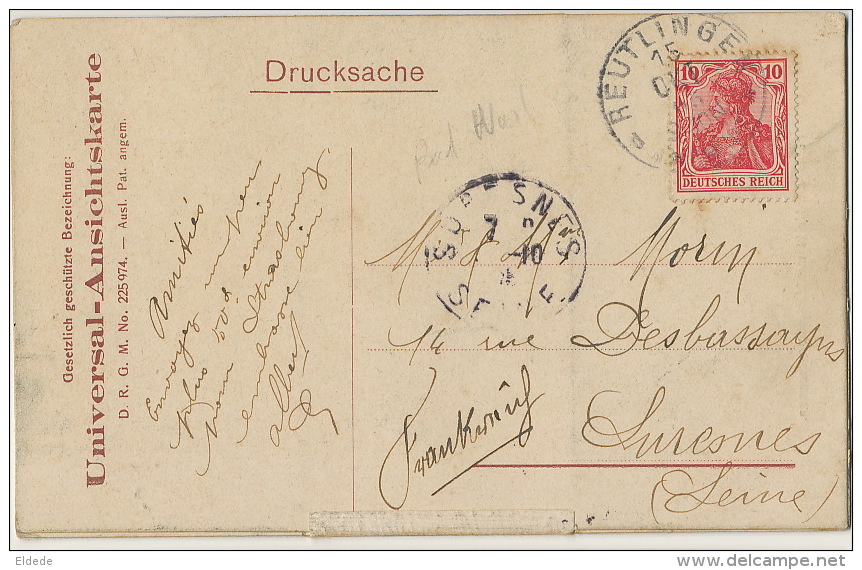 Gesetzlich geschützte Bezeichnung:
Universal-Ansichtskarte
D. R. G. M. No. 225974. — Ausl. Pat. angem.
Drucksache
REUTLINGEN
15
10 10
DEUTSCHES REICH
SURESNES
7 10
SEINE
Amitiés
Envoyez un peu
plus
environ
Strasbourg
embrasse bien
Albert
M. & Morin
14 rue Desbassayns
Suresnes
(Seine)
Frankreich
Eldede
delcampe.net